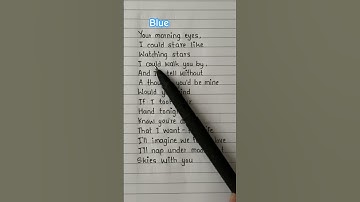 Blue
Your morning eyes,
I could stare like
Watching stars
I could walk you by,
And I tell without
A thou you'd be mine
Would you nd
If I too r
Hand tonig
Know you're
That I want
I'll imagine we
I'll nap under moo
Skies with you